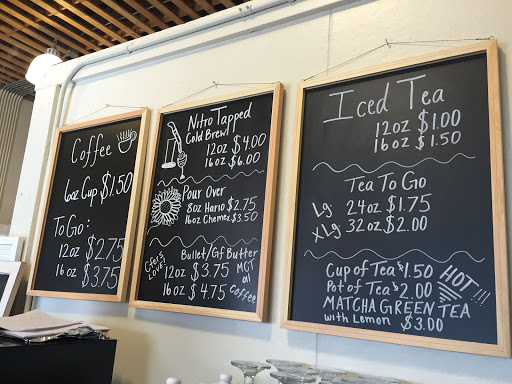 Coffee
6oz Cup $1.50
To Go:
12oz $2.75
16oz $3.75
Nitro Tapped
Cold Brew!
12oz $4.00
16oz $6.00
Pour Over
8oz Hario $2.75
16oz Chemex $3.50
Bullet/Gf Butter
12oz $3.75 MCT
oil
16oz $4.75 Coffee
Iced Tea
12oz $1.00
16oz $1.50
Tea To Go
Lg 24oz $1.75
XLg 32oz $2.00
Cup of Tea $1.50 HOT!!!
Pot of Tea $2.00
MATCHA GREEN TEA
with Lemon $3.00